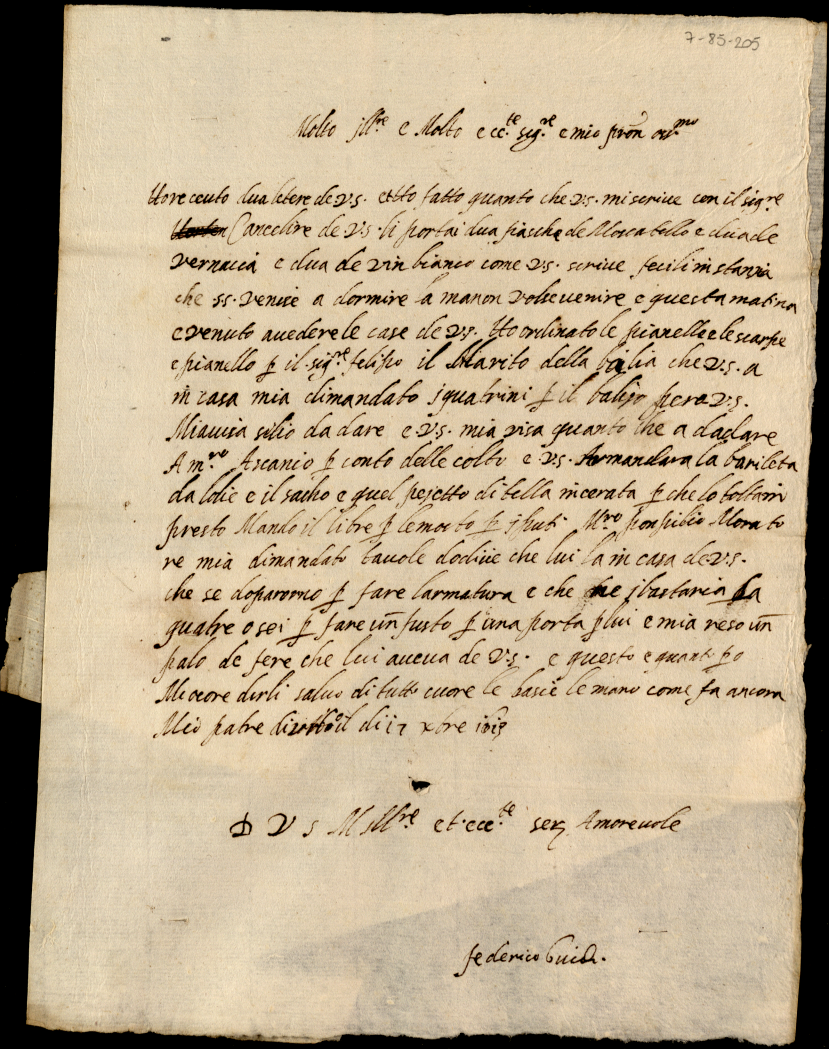 7-85-205
Molto Ill.re e Molto ecc.te sig.re e mio pron oss.mo
Ho receuto dua letere de V.S. et Ho fatto quanto che V.S. mi scrive con il sigre
Canceliere de V.S. li portai dua fiasche de Moscatello e dua de
vernaccia e dua de vin bianco come V.S. scrive feci li instanzia
che SS. venise a dormire la ma non volse venire e questa matina
e venuto a vedere le case de V.S. Ho ordinato le pianelle e le scarpe
e pianello p il sig.re felipo il Marito della balia che V.S. a
in casa mia dimandato j quatrini p il balijo pero V.S.
Mi avisa se lio da dare e V.S. mia visa quanto che a da dare
A m.ro Ascanio p conto delle colto e V.S. la barileta
da lolie e il sacho e quel pesetto di tella incerata p che lo
presto Mando il libre p p j puti M.ro ponpilio Morato
re mia dimandato tavole dodicie che lui la in casa de V.S.
che se doparorno p fare larmatura e che ne j bastaria
quatre o sei p fare un fusto p una porta p lui e mia reso un
palo de fere che lui aveva de V.S. e questo e quant po
Mi core dirli salvo di tutto cuore le bascie le mano come fa ancora
Mio patre di il di 17 xbre
D V S M Ill.re et ecc.te ser Amorevole
federico Guidi.